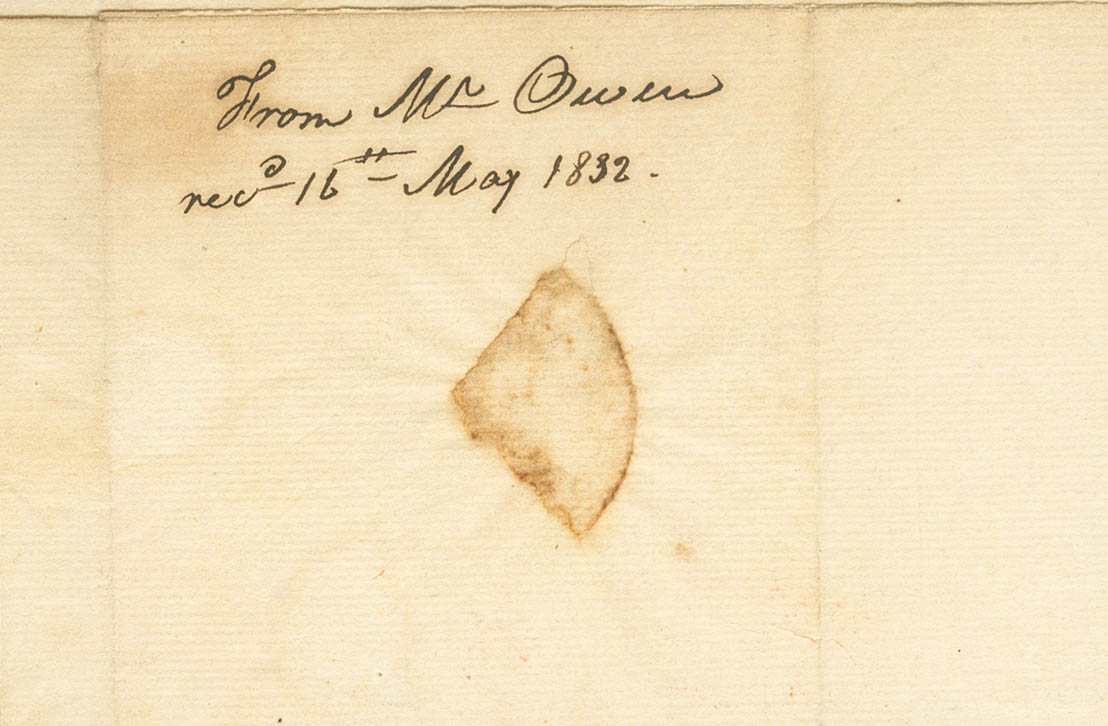 From Mr Owen
recd 16th May 1832.